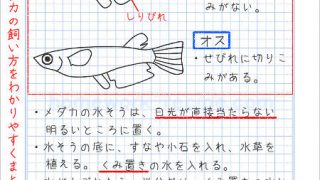 みがない。
しりびれ
オス
・せびれに切りこ
みがある。
カの飼い方をわかりやすくまと
・メダカの水そうは、日光が直接当たらない
明るいところに置く。
・水そうの底に、すなや小石を入れ、水草を
植える。くみ置きの水を入れる。